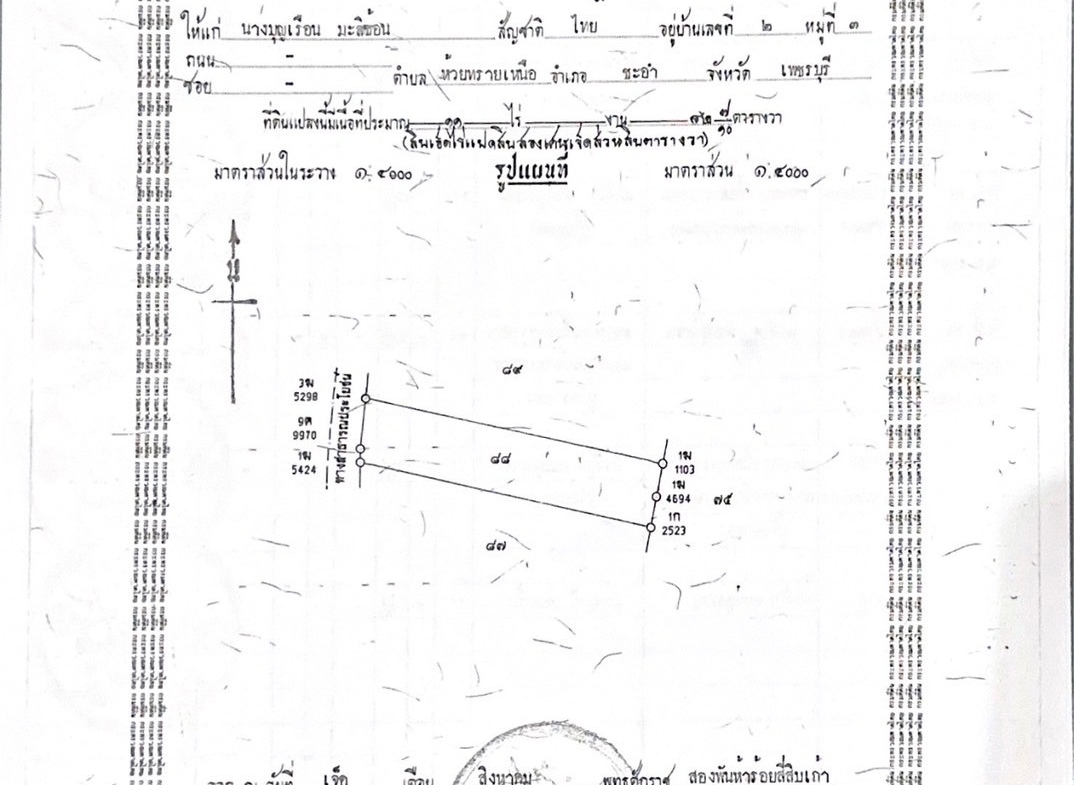 ให้แก่ นางบุญเรือน มะลิซ้อน สัญชาติ ไทย อยู่บ้านเลขที่ ๒ หมู่ที่ ๓
ถนน -
ซอย - ตำบล ห้วยทรายเหนือ อำเภอ ชะอำ จังหวัด เพชรบุรี
ที่ดินแปลงนี้มีเนื้อที่ประมาณ ๑๑ ไร่ งาน ๘๒ ๗/๑๐ ตารางวา
(สิบเอ็ดไร่แปดสิบสองเศษเจ็ดส่วนสิบตารางวา)
มาตราส่วนในระวาง ๑:๔๐๐๐ รูปแผนที่ มาตราส่วน ๑:๔๐๐๐
น
๘๙
3ฒ
5298
9ค
9970
1ฒ
5424
ทางสาธารณประโยชน์
๘๘
1ฒ
1103
1ฒ
4694
๗๕
1ก
2523
๘๗
วันที่ เจ็ด เดือน สิงหาคม พุทธศักราช สองพันห้าร้อยสี่สิบเก้า